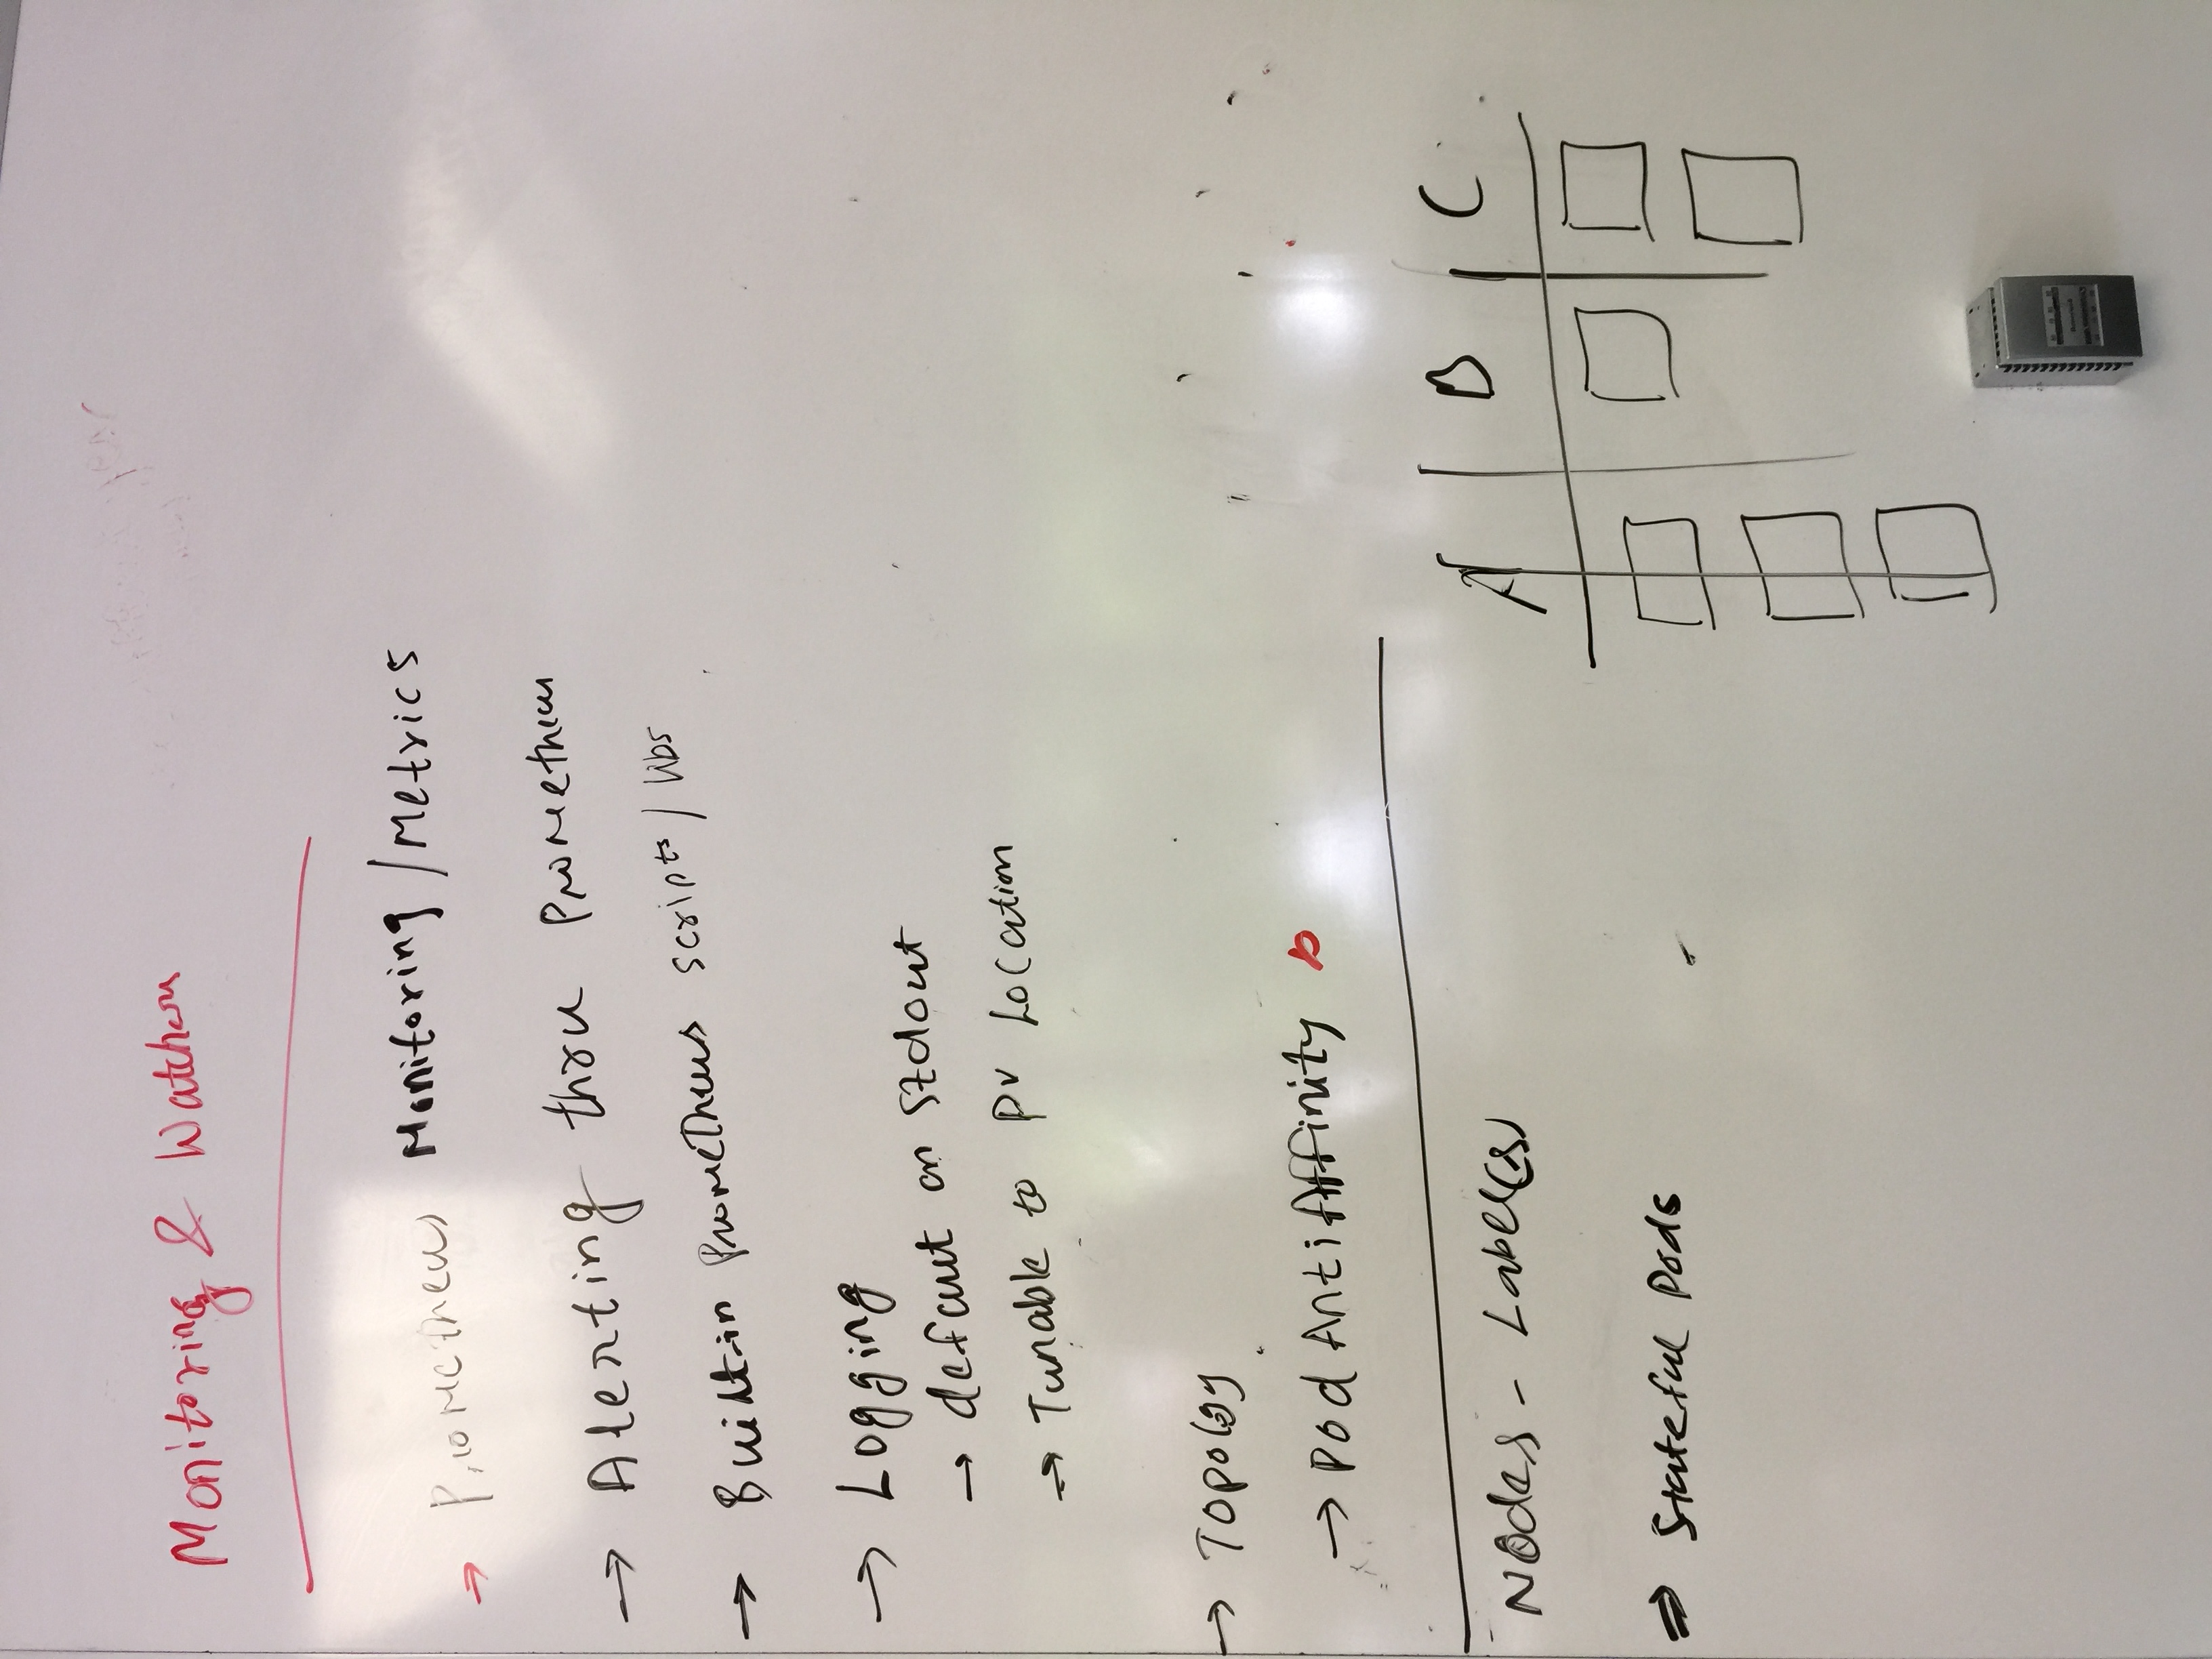 Monitoring & Watchers
→ Prometheus Monitoring / Metrics
→ Alerting thru Prometheus
→ Built-in Prometheus scripts / libs
→ Logging
→ default on Stdout
→ Tunable to PV Location
→ Topology
→ Pod AntiAffinity
Nodes - Label(s)
A B C
⇒ Stateful Pods